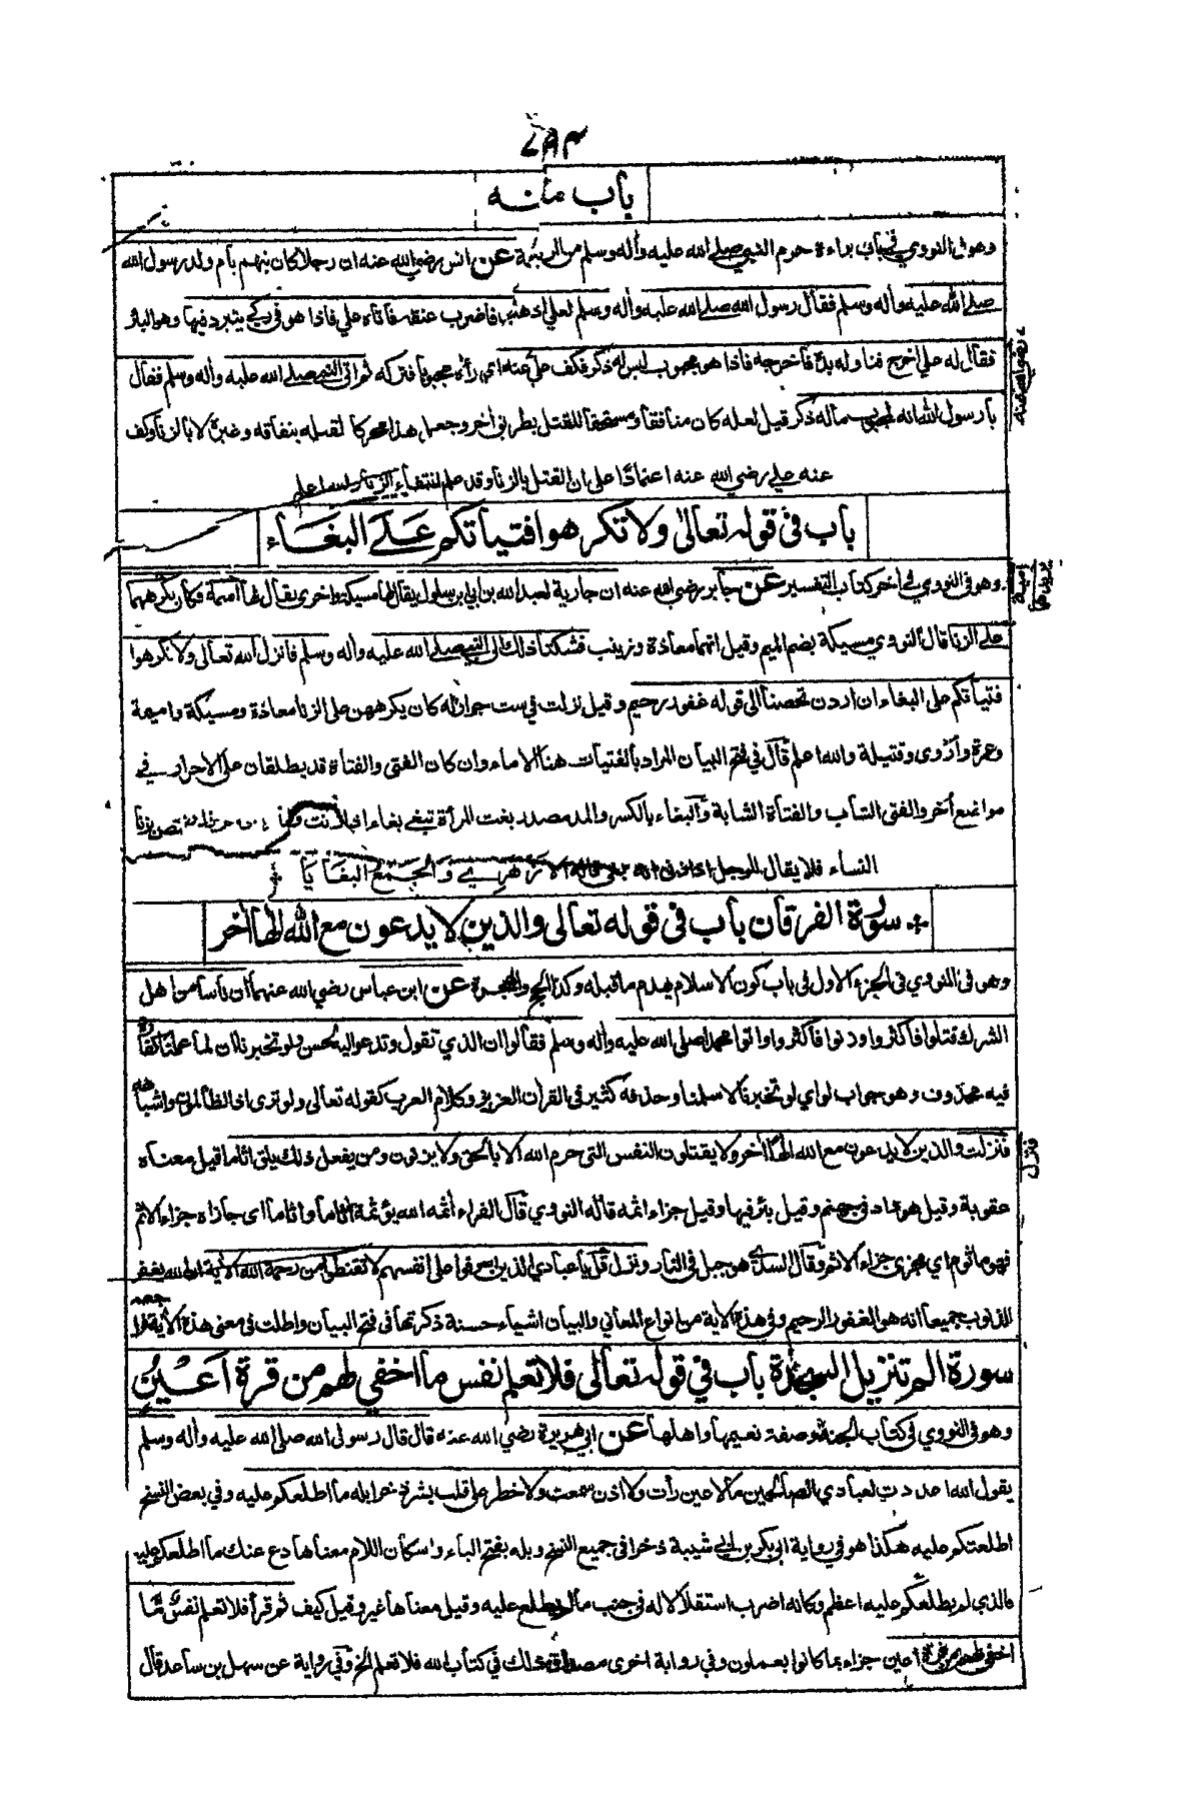 باب منه
وهو في النووي في باب براءة حرم النبي صلى الله عليه وأله وسلم من الريبة عن انس رضي الله عنه ان رجلا كان يتهم بام ولد رسول الله
صلى الله عليه وأله وسلم فقال رسول الله صلى الله عليه وأله وسلم لعلي اذهب فاضرب عنقه فأتاه علي فاذا هو في ركي يتبرد فيها وهو البئر
فقال له علي اخرج فناوله يده فأخرجه فاذا هو مجبوب ليس له ذكر فكف علي عنه اي رأه مجبوبا فتركه ثم اتى النبي صلى الله عليه وأله وسلم فقال
يا رسول الله انه لمجبوب ماله ذكر قيل لعله كان منافقا ومستحقا للقتل بطريق أخر وجعل هذا محركا لقتله بنفاقه وغيره لا بالزنا وكف
عنه علي رضي الله عنه اعتمادا على ان القتل بالزنا وقد علم انتفاء الزنا والله اعلم
باب في قوله تعالى ولا تكرهوا فتياتكم على البغاء
وهو في النووي في أخر كتاب التفسير عن جابر رضي الله عنه ان جارية لعبد الله بن ابي بن سلول يقال لها مسيكة واخرى يقال لها أميمة فكان يكرههما
على الزنا قال النووي مسيكة بضم الميم وقيل انهما معاذة وزينب فشكتا ذلك الى النبي صلى الله عليه وأله وسلم فانزل الله تعالى ولا تكرهوا
فتياتكم على البغاء ان اردن تحصنا الى قوله غفور رحيم وقيل نزلت في ست جوار له كان يكرههن على الزنا معاذة ومسيكة واميمة
وعمرة وأروى وقتيلة والله اعلم قال في فتح البيان المراد بالفتيات هنا الاماء وان كان الفتى والفتاة قد يطلقان على الاحرار في
مواضع أخر والفتى الشاب والفتاة الشابة والبغاء بالكسر والمد مصدر بغت المرأة تبغي بغاء اذا زنت وهذا مختص بزنا
النساء فلا يقال للرجل اذا زنى انه بغي قاله الازهري والجمع البغايا
سورة الفرقان باب في قوله تعالى والذين لا يدعون مع الله الها أخر
وهو في النووي في الجزء الاول في باب كون الاسلام يهدم ما قبله وكذا الحج والهجرة عن ابن عباس رضي الله عنهما أن ناسا من اهل
الشرك قتلوا فاكثروا وزنوا فاكثروا واتوا محمدا صلى الله عليه وأله وسلم فقالوا ان الذي تقول وتدعو اليه لحسن ولو تخبرنا ان لما عملنا كفارة
فيه محذوف وهو جواب لو اي لو تخبرنا لاسلمنا وحذفه كثير في القرأن العزيز وكلام العرب كقوله تعالى ولو ترى اذ الظالمون واشباهه
فنزلت والذين لا يدعون مع الله الها أخر ولا يقتلون النفس التي حرم الله الا بالحق ولا يزنون ومن يفعل ذلك يلق اثاما قيل معناه
عقوبة وقيل هو واد في جهنم وقيل بئر فيها وقيل جزاء اثمه قاله النووي قال الفراء أثمه الله يؤثمه اثاما وأثاما اى جازاه جزاء الاثم
فهو مأثوم اي مجزي جزاء الاثم وقال السدي هو جبل في النار ونزل قل يا عبادي الذين اسرفوا على انفسهم لا تقنطوا من رحمة الله الأية ان الله يغفر
الذنوب جميعا انه هو الغفور الرحيم وفي هذه الأية من انواع المعاني والبيان اشياء حسنة ذكرتها في فتح البيان واطلت في معنى هذه الأية
سورة الم تنزيل السجدة باب في قوله تعالى فلا تعلم نفس ما اخفي لهم من قرة اعين
وهو في النووي في كتاب الجنة وصفة نعيمها واهلها عن ابي هريرة رضي الله عنه قال قال رسول الله صلى الله عليه وأله وسلم
يقول الله اعددت لعبادي الصالحين مالا عين رأت ولا اذن سمعت ولا خطر على قلب بشر ذخرا بله ما أطلعكم عليه وفي بعض النسخ
اطلعتكم عليه هكذا هو في رواية ابي بكر بن ابي شيبة ذخرا في جميع النسخ وبله بفتح الباء واسكان اللام معناها دع عنك ما أطلعكم عليه
فالذي لم يطلعكم عليه اعظم وكانه اضرب استقلالا له في جنب مالم يطلع عليه وقيل معناها غير وقيل كيف ثم قرأ فلا تعلم نفس ما
اخفي لهم من قرة أعين جزاء بما كانوا يعملون وفي رواية اخرى مصداق ذلك في كتاب الله فلا تعلم الخ وفي رواية عن سهل بن ساعد قال
فنزل